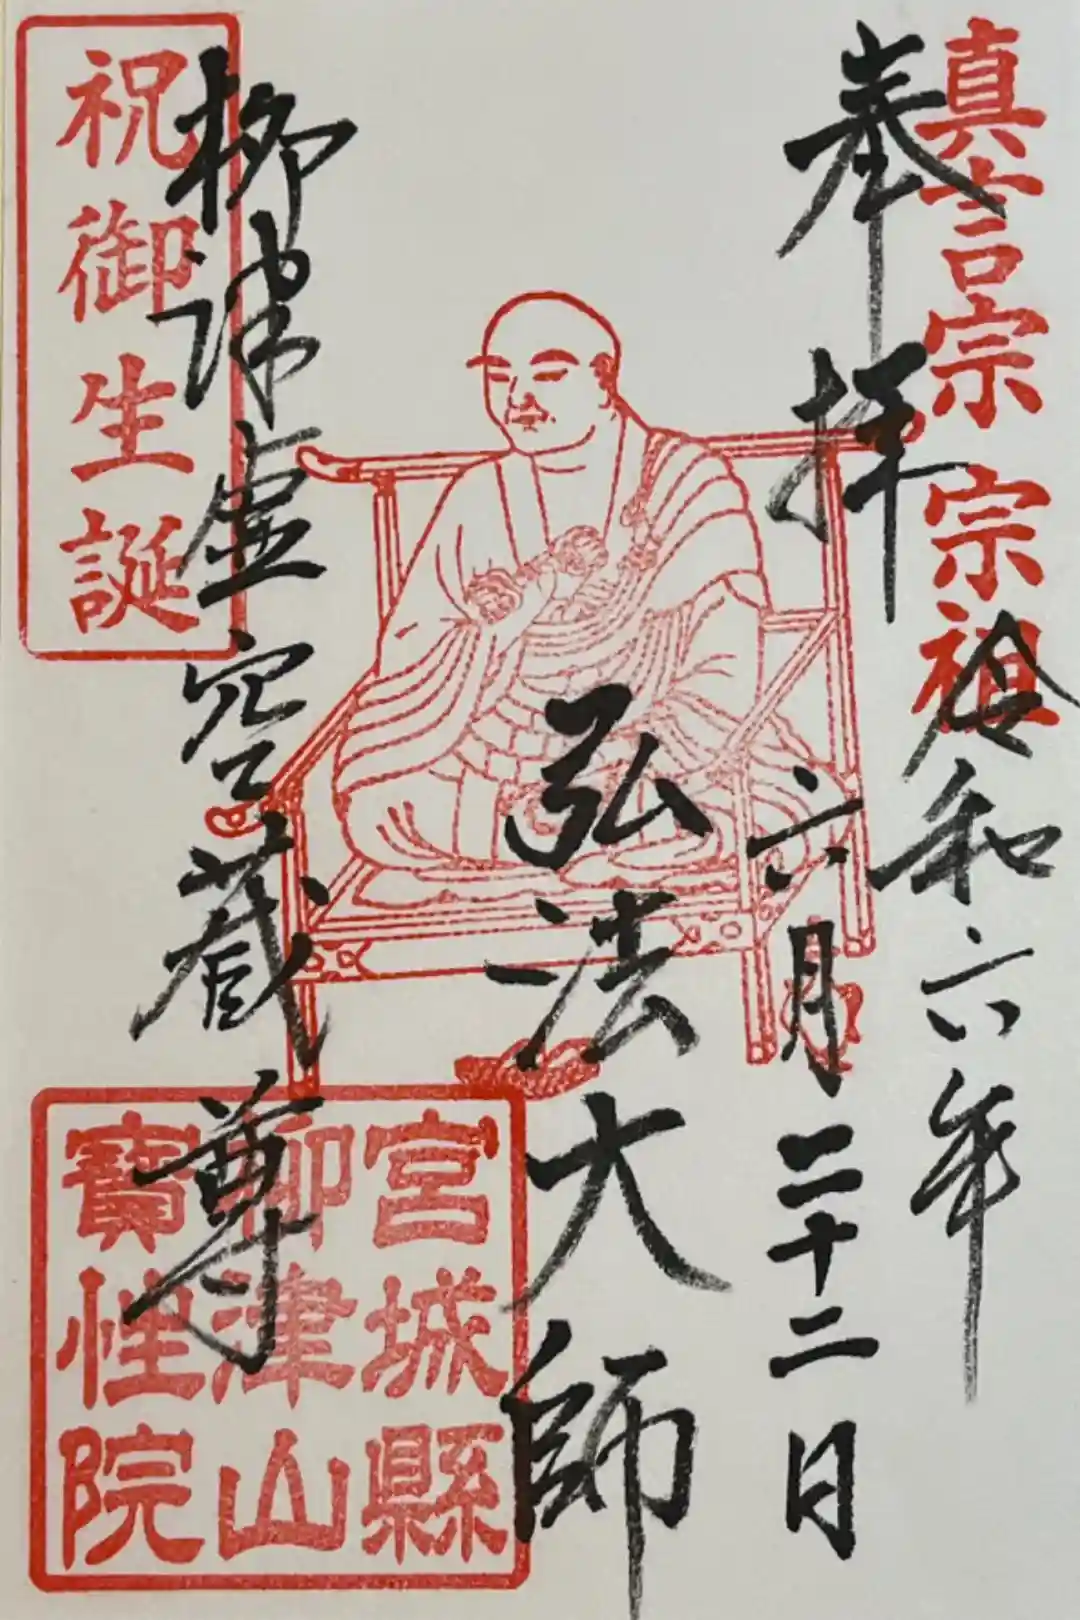 真言宗宗祖
奉拝
令和六年
六月二十二日
弘法大師
柳津虚空蔵尊
祝御生誕
宮城縣
柳津山
寳性院